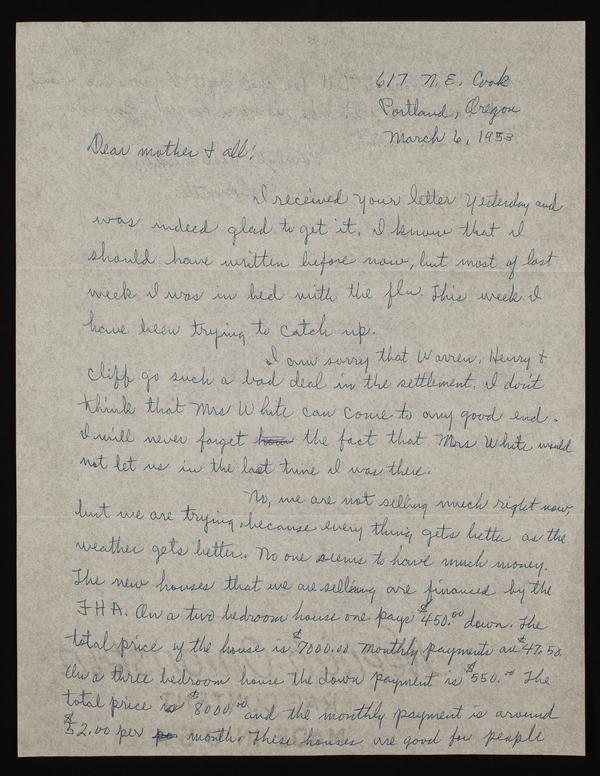 617 N.E. Cook
Portland, Oregon
March 6, 1953
Dear mother & all:
I received your letter yesterday and
was indeed glad to get it. I know that I
should have written before now, but most of last
week I was in bed with the flu. This week I
have been trying to catch up.
I am sorry that Warren, Henry &
Cliff go such a bad deal in the settlement. I don't
think that Mrs White can come to any good end.
I will never forget how the fact that Mrs White would
not let us in the last time I was there.
No, we are not selling much right now,
but we are trying, because every thing gets better as the
weather gets better. No one seems to have much money.
The new houses that we are selling are financed by the
FHA. On a two bedroom house one pays $450.00 down. The
total price of the house is $7000.00 monthly payments are $47.50
On a three bedroom house the down payment is $550.00 The
total price is $8000.00 and the monthly payment is around
$52.00 per month. These houses are good for people